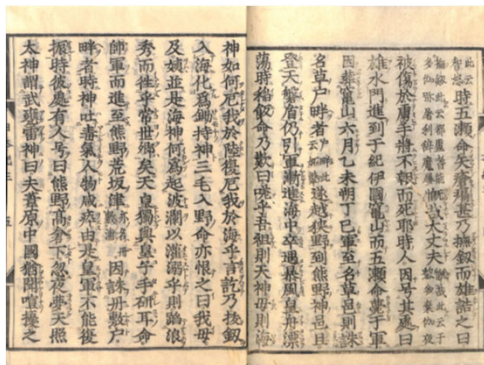 時五瀬命矢瘡痛甚乃撫劔而雄誥之曰
慨哉大丈夫
被傷於虜手將不報而死耶時人因号其處曰
雄水門進到于紀伊國竈山而五瀬命薨于軍
因葬竈山六月乙未朔丁巳軍至名草邑則誅
名草戸畔者遂越狹野到熊野神邑且
登天磐盾仍引軍漸進海中卒遇暴風皇舟漂
蕩時稻飯命乃歎曰嗟乎吾祖則天神母則海
神如何厄我於陸復厄我於海乎言訖乃拔劔
入海化爲鋤持神三毛入野命亦恨之曰我母
及姨並是海神何爲起波瀾以灌溺乎則蹈浪
秀而往乎常世鄕矣天皇獨與皇子手研耳命
帥軍而進至熊野荒坂津亦名丹敷浦因誅丹敷戸
畔者時神吐毒氣人物咸瘁由是皇軍不能復
振時彼處有人号曰熊野高倉下忽夜夢天照
太神謂武甕雷神曰夫葦原中國猶聞喧擾之